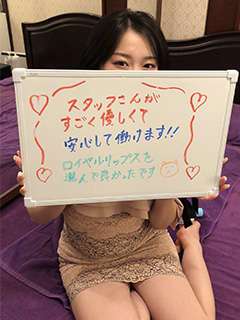 スタッフさんが
すごく優しくて
安心して働けます!!
ロイヤルリップスを
選んで良かったです